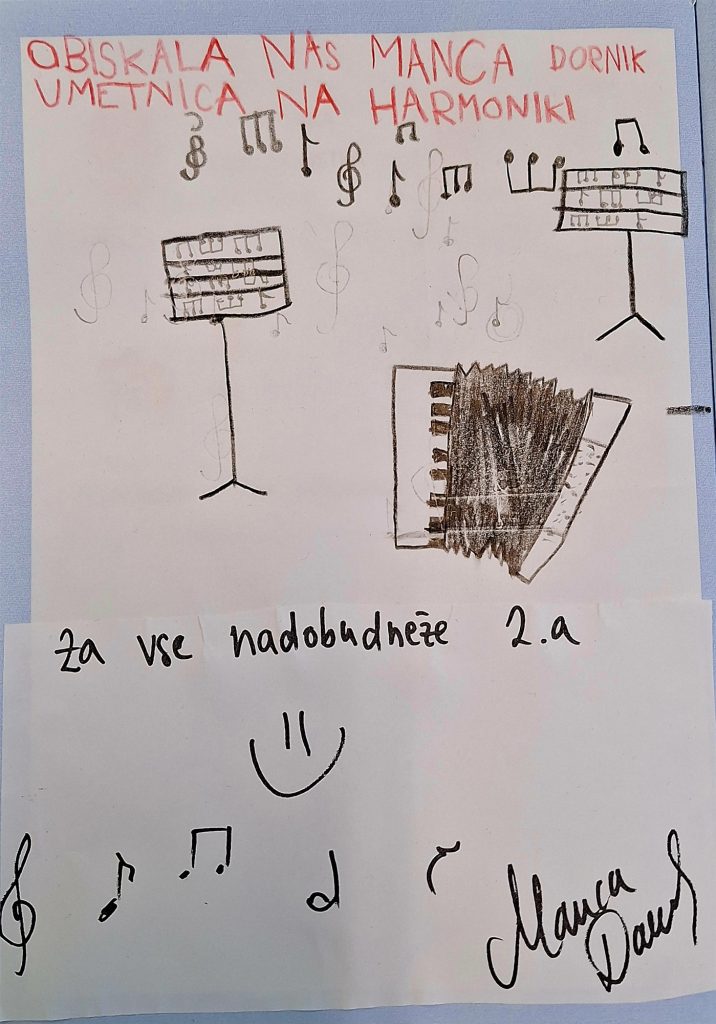 OBISKALA NAS MANCA DORNIK
UMETNICA NA HARMONIKI
za vse nadobudneže 2.a
Manca